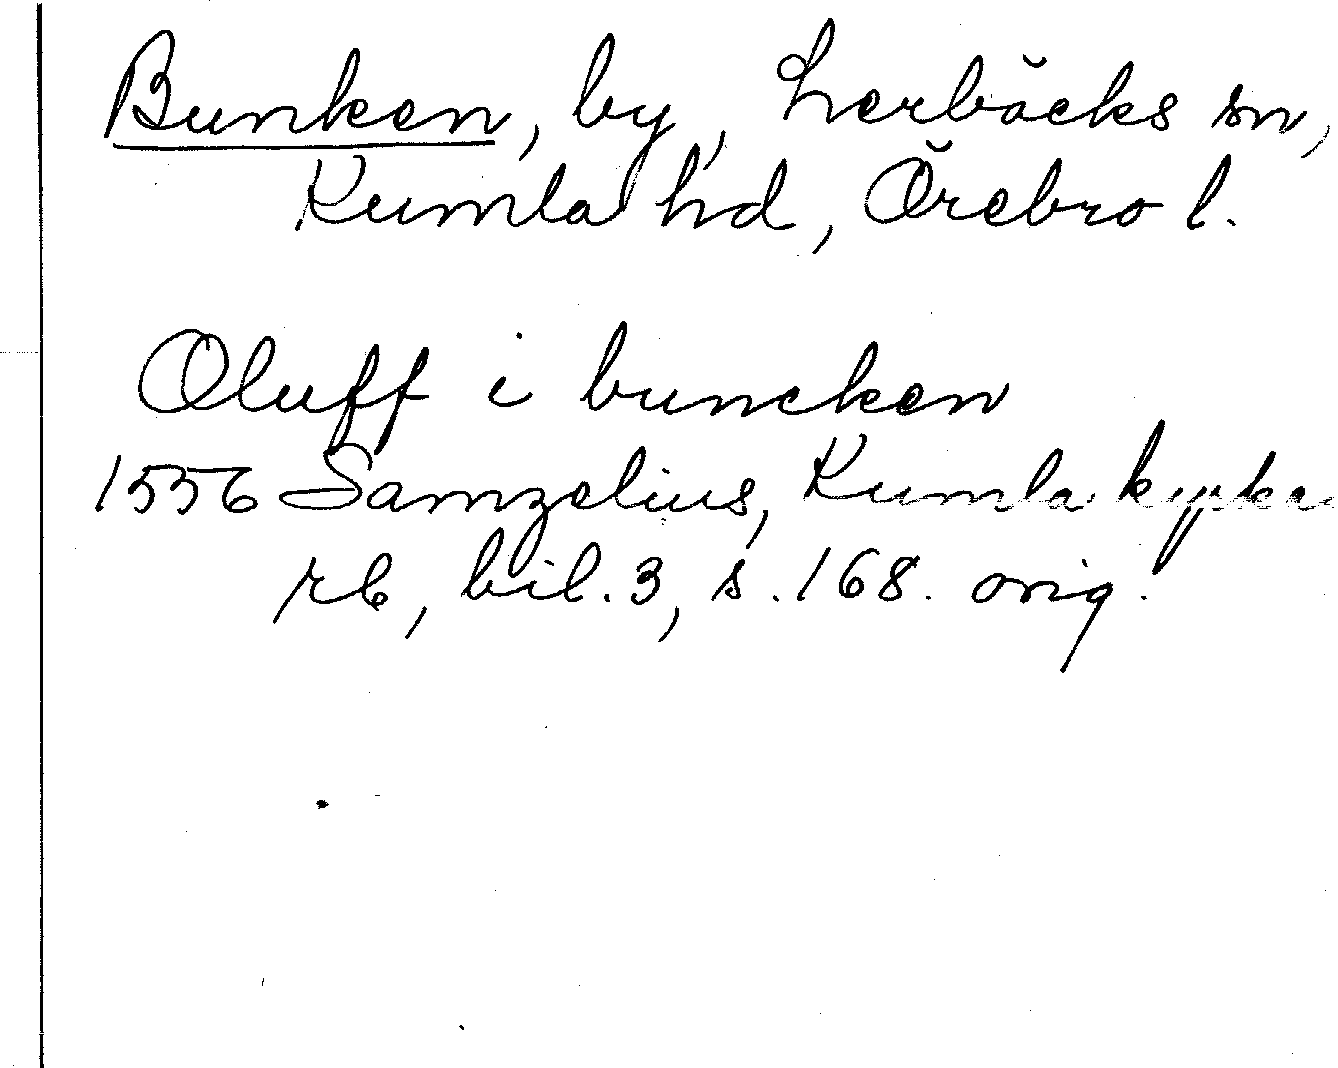 Bunken, by, Lerbäcks sn,
Kumla hd, Örebro l.
Oluff i buncken
1556 Samzelius, Kumla kyrkas
rb, bil. 3, s. 168. orig.